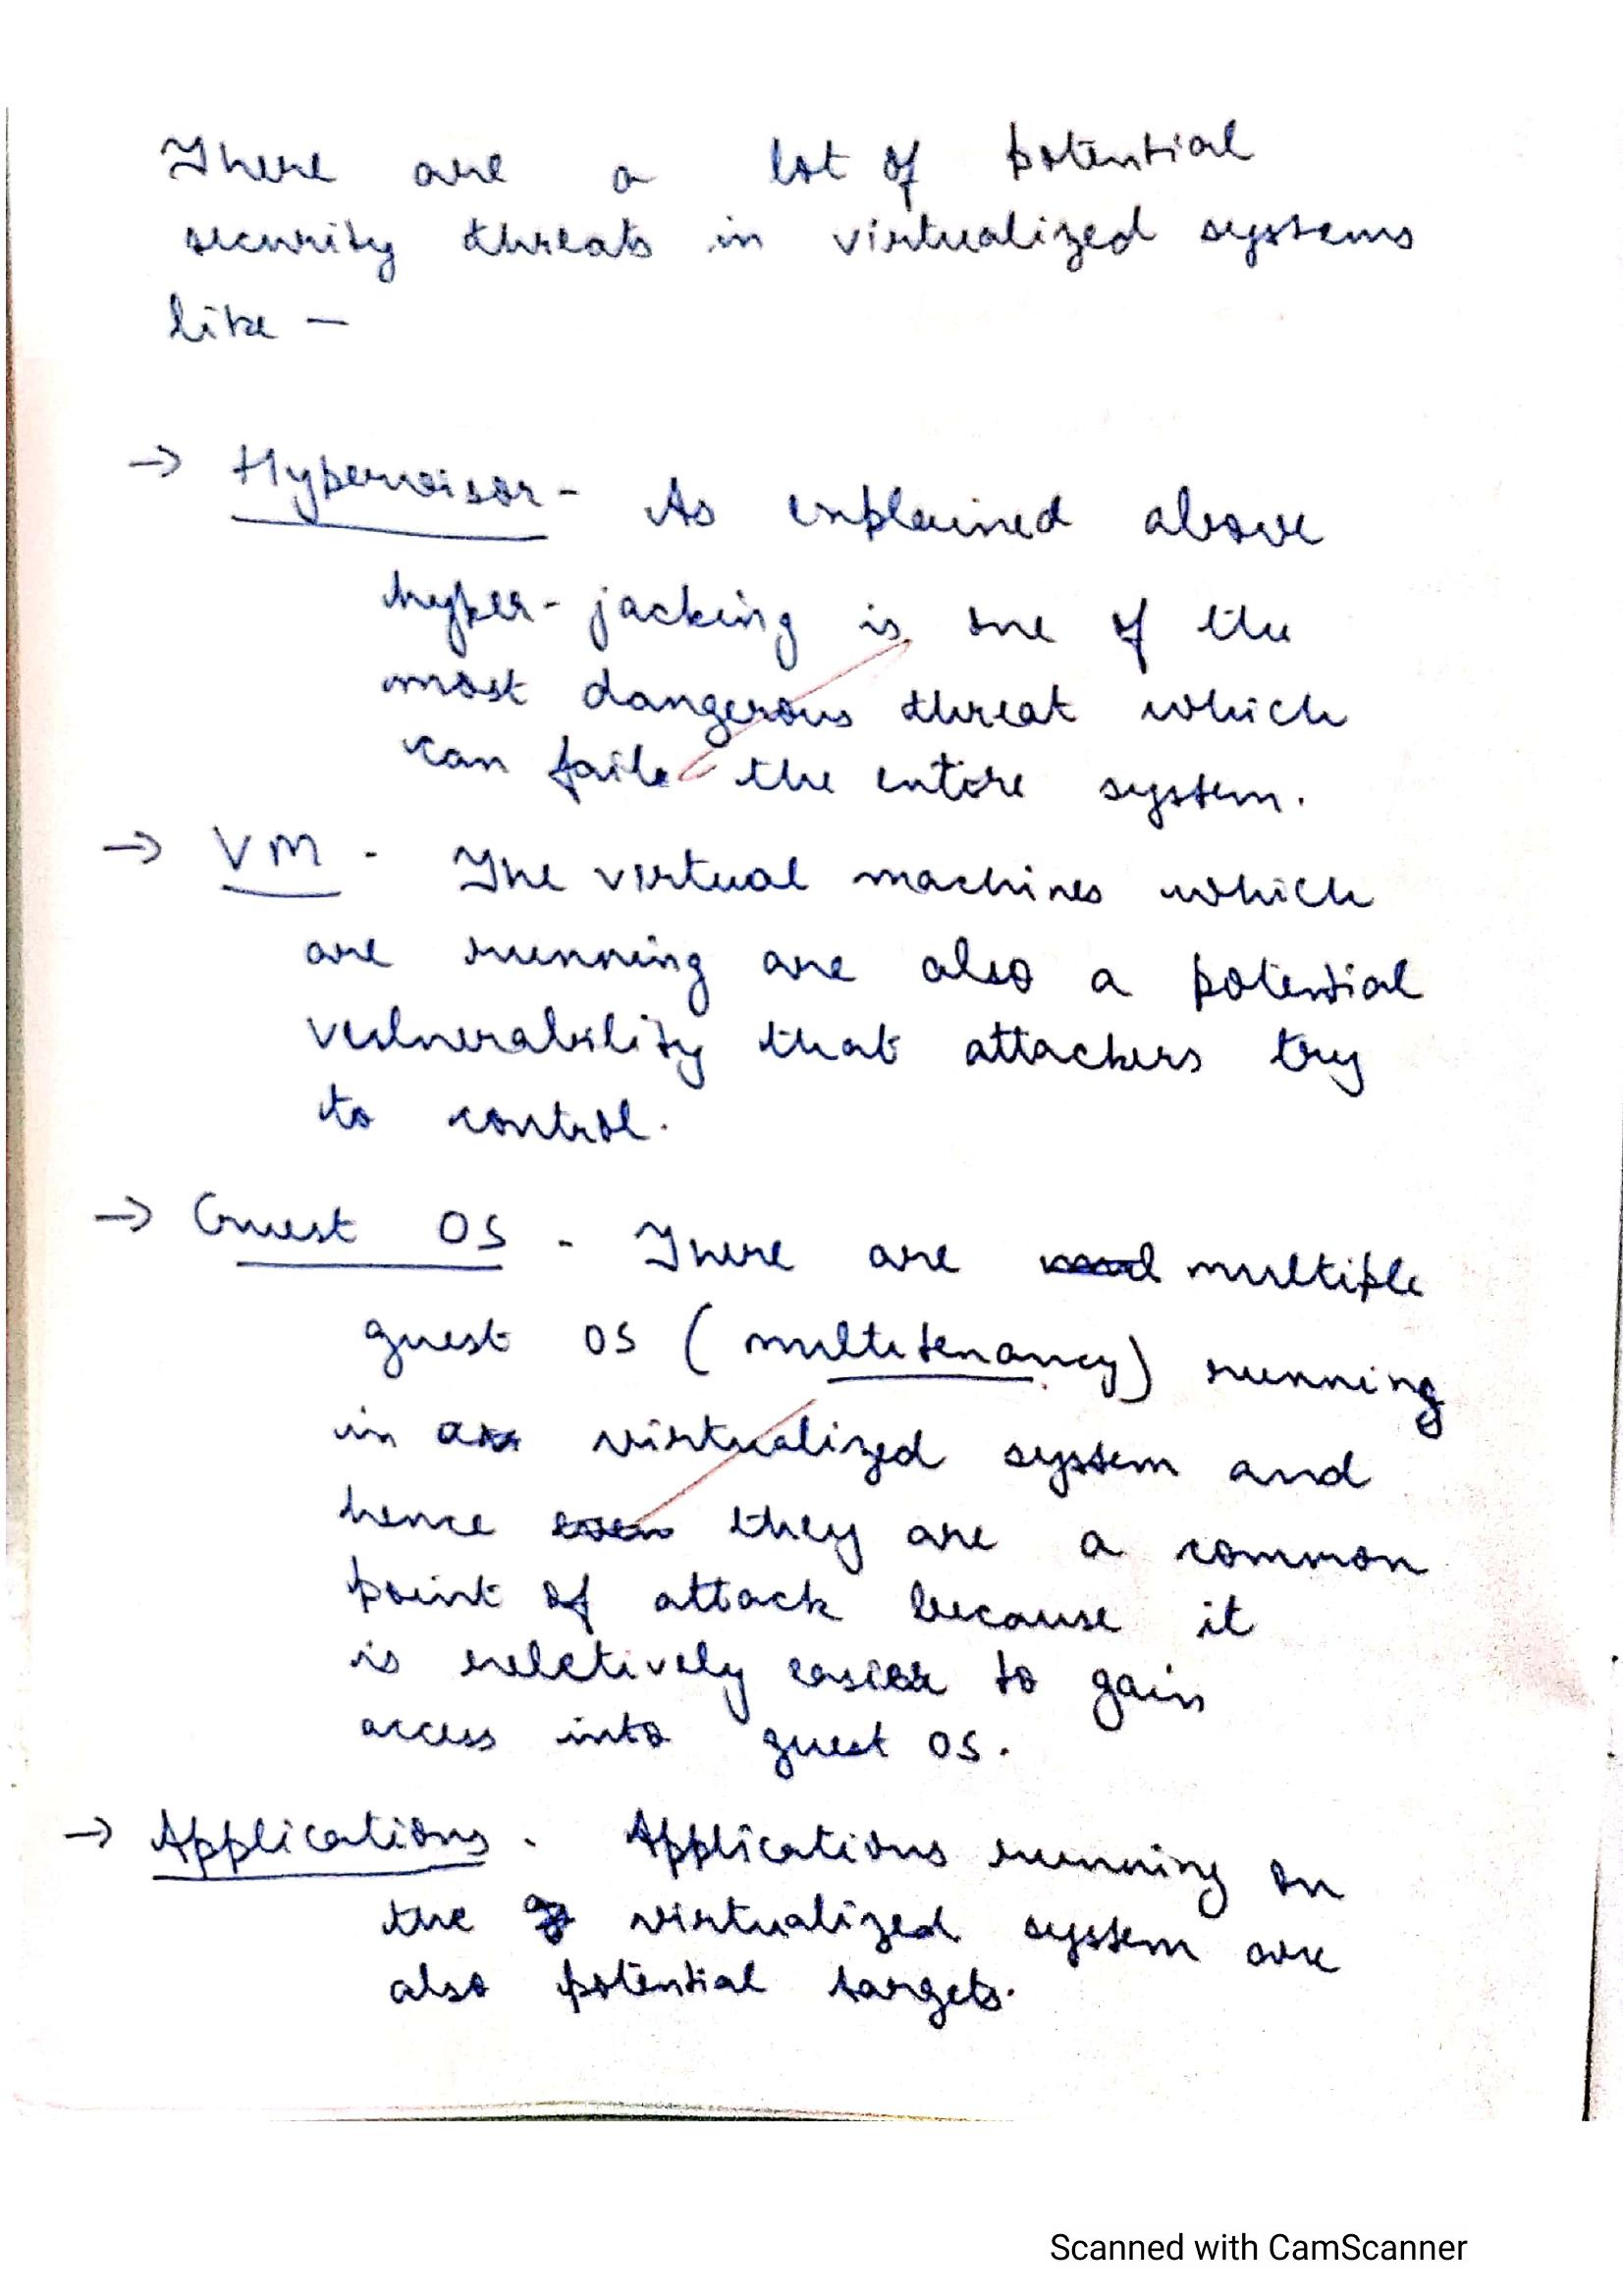 There are a lot of potential
security threats in virtualized systems
like —
→ Hypervisor - As explained above
hyper-jacking is one of the
most dangerous threat which
can faile the entire system.
→ VM - The virtual machines which
are running are also a potential
vulnerability that attackers try
to control.
→ Guest OS - There are multiple
guest OS (multitenancy) running
in a virtualized system and
hence they are a common
point of attack because it
is reletively easier to gain
access into guest OS.
→ Applications - Applications running on
the virtualized system are
also potential targets.
Scanned with CamScanner